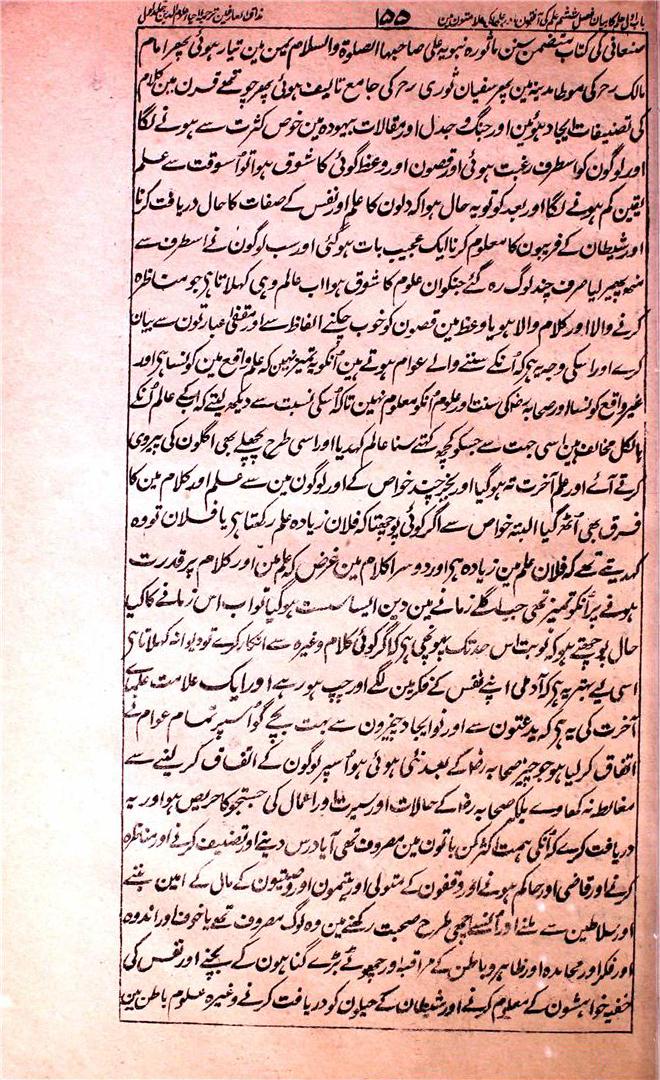 باب اول علم کا بیان فصل ششم علم کی آفتوں اور ۱۵۵ مذاق العارفین ترجمہ احیاء علوم الدین جلد اول
صنعانی کی کتاب متضمن سنن ماثورہ نبویہ علی صاحبہا الصلوۃ والسلام یمن مین تیار ہوئی پھر امام
مالک رح کی موطا مدینہ مین پھر سفیان ثوری رح کی جامع تالیف ہوئی پھر چوتھے قرن مین کلام
کی تصنیفات ایجاد ہوئین اور جنگ و جدل اور مقالات بیہودہ مین خوض کثرت سے ہونے لگا
اور لوگون کو اسطرف رغبت ہوئی اور قصون اور وعظ گوئی کا شوق ہوا تو اُسوقت سے علم
یقین کم ہونے لگا اور بعد کو تو یہ حال ہوا کہ دلون کا علم اور نفس کے صفات کا حال دریافت کرنا
اور شیطان کے فریبون کا معلوم کرنا ایک عجیب بات ہو گئی اور سب لوگون نے اسطرف سے
منھ پھیر لیا صرف چند لوگ رہ گئے جنکو ان علوم کا شوق ہوا اب عالم وہی کہلاتا ہی جو مناظرہ
کرنے والا اور کلام والا ہو یا وعظ مین قصون کو خوب چکنے الفاظ سے اور مقفیٰ عبارتون سے بیان
کرے اور اسکی وجہ یہ ہی کہ اُنکے سننے والے عوام ہوتے ہین اُنکو یہ تمیز نہین کہ علم واقع مین کونسا ہی اور
غیر واقع کونسا اور صحابہ رض کی سنت اور علوم اُنکو معلوم نہین تاکہ اُسکی نسبت سے دیکھ لیتے کہ ابکے عالم اُنکے
بالکل مخالف ہین اسی جہت سے جسکو کچھ کہتے سنا عالم کہدیا اور اسی طرح پچھلے بھی اگلون کی پیروی
کرتے آئے اور علم آخرت تہ ہو گیا اور بجز چند خواص کے اور لوگون مین سے علم اور کلام مین کا
فرق بھی اُٹھ گیا البتہ خواص سے اگر کوئی پوچھتا کہ فلان زیادہ علم رکھتا ہی یا فلان تو وہ
کہدیتے تھے کہ فلان علم مین زیادہ ہی اور دوسرا کلام مین غرض کہ علم مین اور کلام پر قدرت
ہونے پر اُنکو تمیز تھی جب اگلے زمانے مین دین ایسا سست ہو گیا تو اب اس زمانے کا کیا
حال پوچھتے ہو کہ نوبت اس حد تک پہونچی ہی کہ اگر کوئی کلام وغیرہ سے انکار کرے تو دیوانہ کہلاتا ہی
اسی لیے بہتر یہ ہی کہ آدمی اپنے نفس کے فکر مین لگے اور چپ ہو رہے اور ایک علامت علماے
آخرت کی یہ ہی کہ بدعتون سے اور نو ایجاد چیزون سے بہت بچے گو اُسپر تمام عوام نے
اتفاق کر لیا ہو جو چیز صحابہ رض کے بعد نئی ہوئی ہو اُسپر لوگون کے اتفاق کر لینے سے
مغالطہ نہ کھاوے بلکہ صحابہ رض کے حالات اور سیرت اور اعمال کی جستجو کا حریص ہو اور یہ
دریافت کرے کہ اُنکی ہمت اکثر کن باتون مین مصروف تھی آیا درس دینے اور تصنیف کرنے اور مناظرہ
کرنے اور قاضی اور حاکم ہونے اور وقفون کے متولی اور یتیمون اور وصیتون کے مال کے امین بننے
اور سلاطین سے ملنے اور اُنسے اچھی طرح صحبت رکھنے مین وہ لوگ مصروف تھے یا خوف اور اندوہ
اور فکر اور مجاہدہ اور ظاہر و باطن کے مراقبہ اور چھوٹے بڑے گناہون کے بچنے اور نفس کی
خفیہ خواہشون کے معلوم کرنے اور شیطان کے حیلون کو دریافت کرنے وغیرہ علوم باطن مین